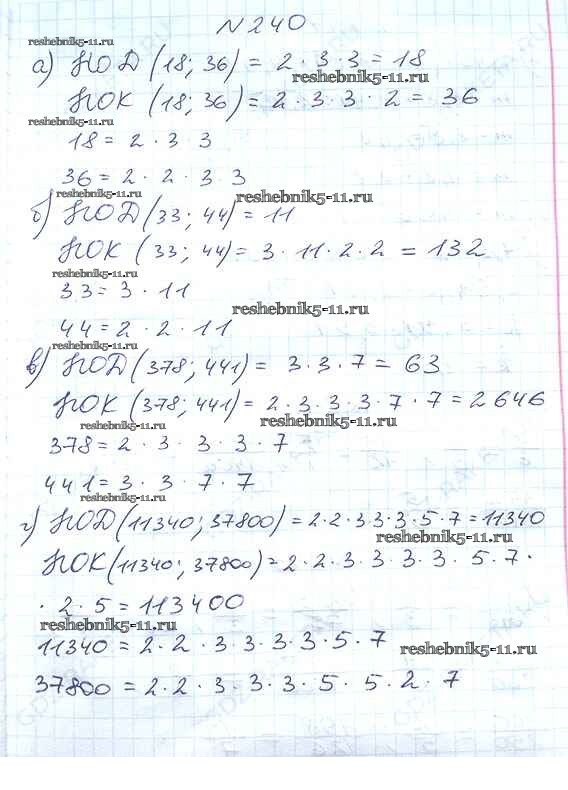 N 240
reshebnik5-11.ru
а) НОД (18; 36) = 2 · 3 · 3 = 18
reshebnik5-11.ru
НОК (18; 36) = 2 · 3 · 3 · 2 = 36
reshebnik5-11.ru
18 = 2 · 3 · 3
36 = 2 · 2 · 3 · 3
reshebnik5-11.ru
reshebnik5-11.ru
б) НОД (33; 44) = 11
НОК (33; 44) = 3 · 11 · 2 · 2 = 132
reshebnik5-11.ru
33 = 3 · 11
reshebnik5-11.ru
44 = 2 · 2 · 11
reshebnik5-11.ru
в) НОД (378; 441) = 3 · 3 · 7 = 63
НОК (378; 441) = 2 · 3 · 3 · 3 · 7 · 7 = 2646
reshebnik5-11.ru
reshebnik5-11.ru
378 = 2 · 3 · 3 · 3 · 7
441 = 3 · 3 · 7 · 7
reshebnik5-11.ru
г) НОД (11340; 37800) = 2 · 2 · 3 · 3 · 3 · 5 · 7 = 11340
reshebnik5-11.ru
reshebnik5-11.ru
НОК (11340; 37800) = 2 · 2 · 3 · 3 · 3 · 3 · 5 · 7 ·
· 2 · 5 = 113400
reshebnik5-11.ru
11340 = 2 · 2 · 3 · 3 · 3 · 3 · 5 · 7
reshebnik5-11.ru
37800 = 2 · 2 · 3 · 3 · 3 · 5 · 5 · 2 · 7